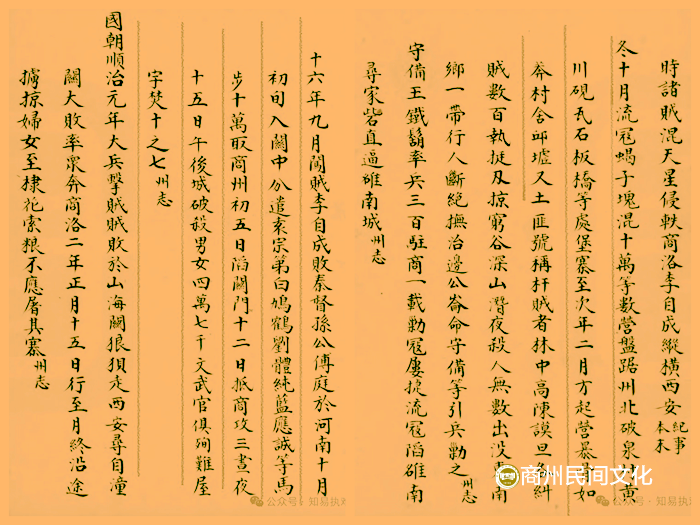 時諸賊混天星侵軼商洛李自成縱橫西安紀事本末
冬十月流寇蝎子塊混十萬等數營盤踞州北破泉黃
川硯瓦石板橋等處堡寨至次年二月方起營暴骨如
莽村舍邱墟又土匪號稱杆賊者林中高陳謨旦各糾
賊數百執挺及掠窮谷深山潛夜殺人無數出没南
鄉一帶行人斷絕撫治邊公崙命守備等引兵勦之州志
守備王鐵鬍率兵三百駐商一載勦寇屢捷流寇陷雒南
尋家砦直逼雒南城州志
十六年九月闖賊李自成敗秦督孫公傳庭於河南十月
初旬入關中分遣袁宗第白鳩鶴劉體純藍應誠等馬
步十萬取商州初五日陷關門十二日抵商攻三晝夜
十五日午後城破殺男女四萬七千文武官俱殉難屋
宇焚十之七州志
國朝順治元年大兵擊賊賊敗於山海關狼狽走西安尋自潼
關大敗率衆奔商洛二年正月十五日行至月終沿途
擄掠婦女至棣花索粮不應屠其寨州志
商州民间文化
公众号·知易执
公众号·知易执难